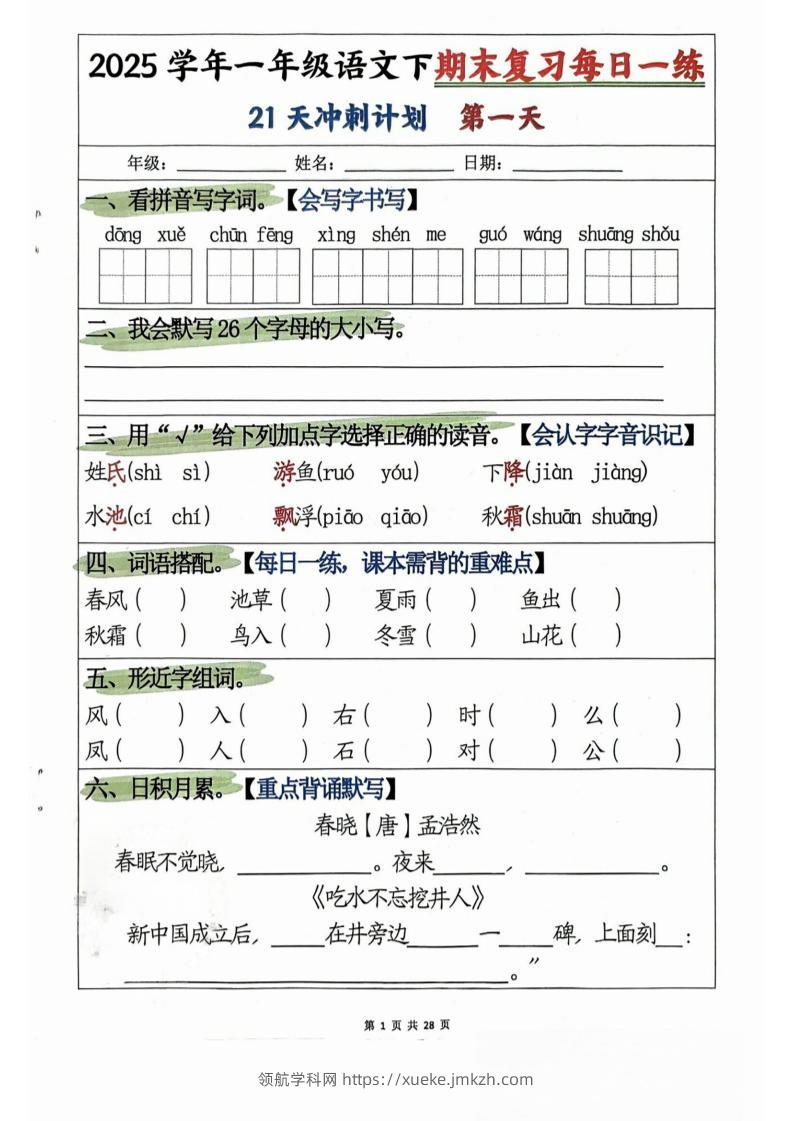 2025 学年一年级语文下期末复习每日一练
21 天冲刺计划 第一天
年级：____________ 姓名：____________ 日期：____________
一、看拼音写字词。【会写字书写】
dōng xuě chūn fēng xìng shén me guó wáng shuāng shǒu
二、我会默写 26 个字母的大小写。
三、用“√”给下列加点字选择正确的读音。【会认字字音识记】
姓氏(shì sì) 游鱼(ruó yóu) 下降(jiàn jiàng)
水池(cí chí) 飘浮(piāo qiāo) 秋霜(shuān shuāng)
四、词语搭配。【每日一练，课本需背的重难点】
春风（ ） 池草（ ） 夏雨（ ） 鱼出（ ）
秋霜（ ） 鸟入（ ） 冬雪（ ） 山花（ ）
五、形近字组词。
风（ ） 入（ ） 右（ ） 时（ ） 么（ ）
凤（ ） 人（ ） 石（ ） 对（ ） 公（ ）
六、日积月累。【重点背诵默写】
春晓【唐】孟浩然
春眠不觉晓，____________。夜来______，____________。
《吃水不忘挖井人》
新中国成立后，_____在井旁边______一_____碑，上面刻__：
____________________________________。”
第 1 页 共 28 页
领航学科网 https://xueke.jmkzh.com